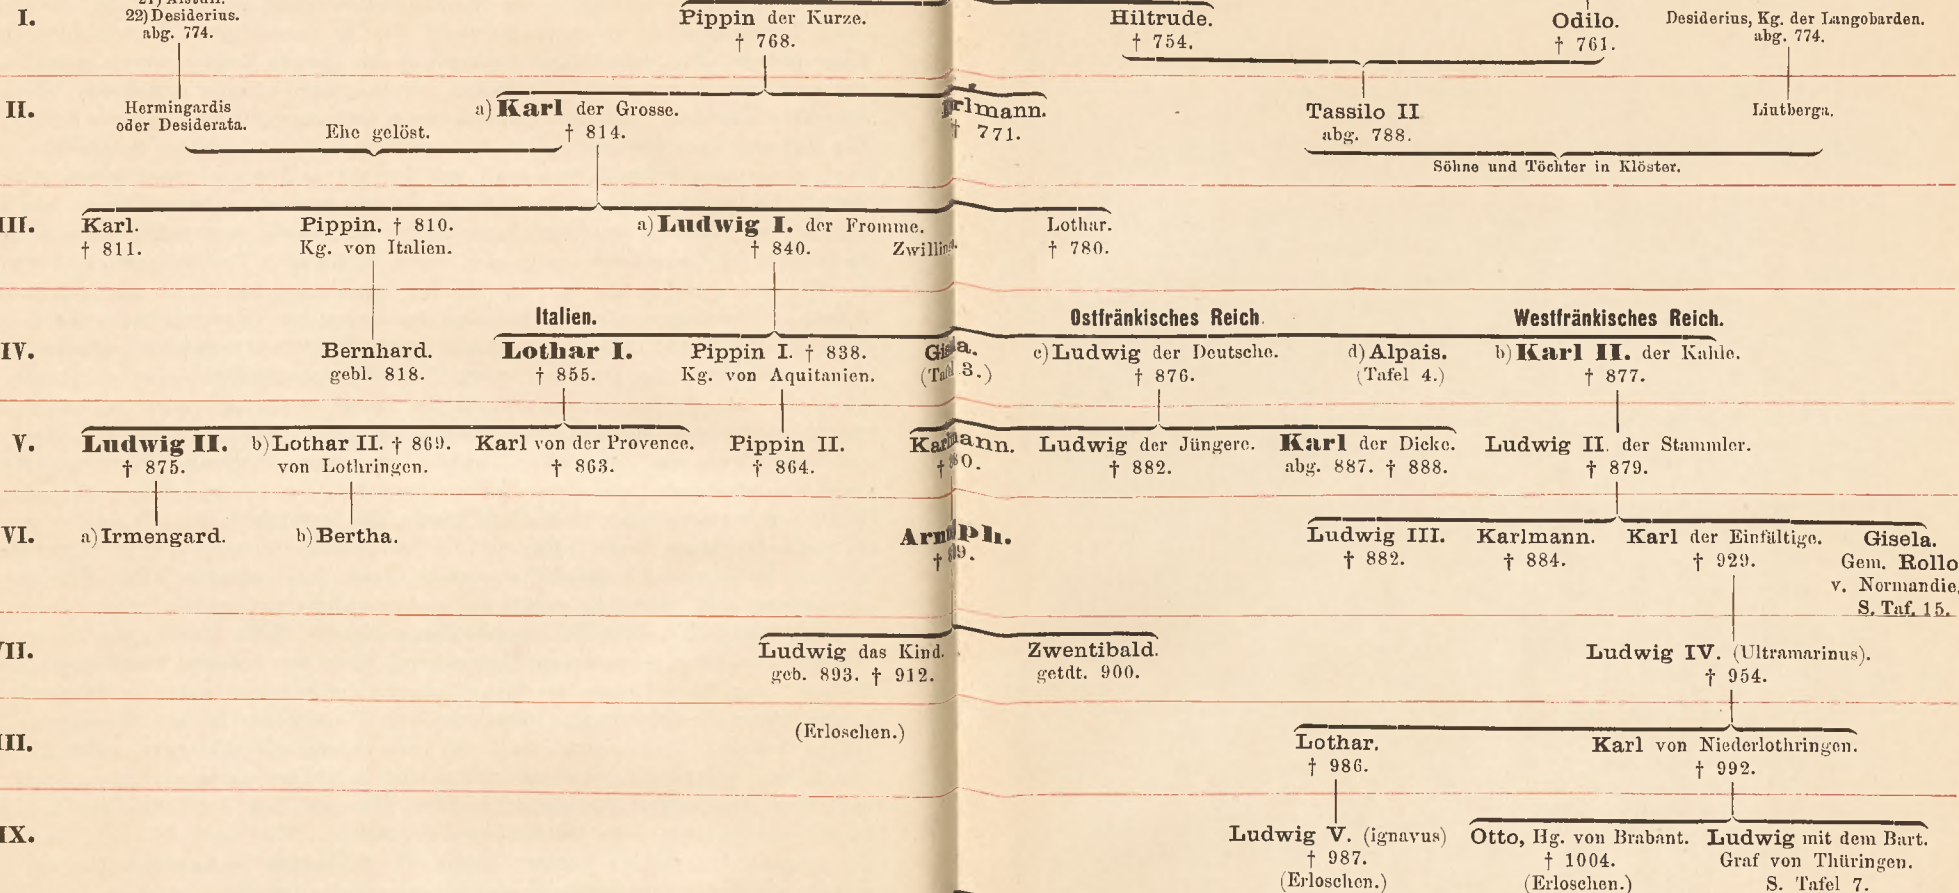 I.
22) Desiderius.
abg. 774.
Pippin der Kurze.
† 768.
Hiltrude.
† 754.
Odilo.
† 761.
Desiderius, Kg. der Langobarden.
abg. 774.
II.
Hermingardis
oder Desiderata.
Ehe gelöst.
a) Karl der Grosse.
† 814.
rlmann.
† 771.
Tassilo II
abg. 788.
Liutberga.
Söhne und Töchter in Klöster.
III.
Karl.
† 811.
Pippin. † 810.
Kg. von Italien.
a) Ludwig I. der Fromme.
† 840.
Zwilling.
Lothar.
† 780.
Italien.
Ostfränkisches Reich.
Westfränkisches Reich.
IV.
Bernhard.
gebl. 818.
Lothar I.
† 855.
Pippin I. † 838.
Kg. von Aquitanien.
Gisela.
(Tafel 3.)
c) Ludwig der Deutsche.
† 876.
d) Alpais.
(Tafel 4.)
b) Karl II. der Kahle.
† 877.
V.
Ludwig II.
† 875.
b) Lothar II. † 869.
von Lothringen.
Karl von der Provence.
† 863.
Pippin II.
† 864.
Karlmann.
† 880.
Ludwig der Jüngere.
† 882.
Karl der Dicke.
abg. 887. † 888.
Ludwig II. der Stammler.
† 879.
VI.
a) Irmengard.
b) Bertha.
Arnulph.
† 899.
Ludwig III.
† 882.
Karlmann.
† 884.
Karl der Einfältige.
† 929.
Gisela.
Gem. Rollo
v. Normandie.
S. Taf. 15.
VII.
Ludwig das Kind.
geb. 893. † 912.
Zwentibald.
getdt. 900.
Ludwig IV. (Ultramarinus).
† 954.
III.
(Erloschen.)
Lothar.
† 986.
Karl von Niederlothringen.
† 992.
IX.
Ludwig V. (ignavus)
† 987.
(Erloschen.)
Otto, Hg. von Brabant.
† 1004.
(Erloschen.)
Ludwig mit dem Bart.
Graf von Thüringen.
S. Tafel 7.